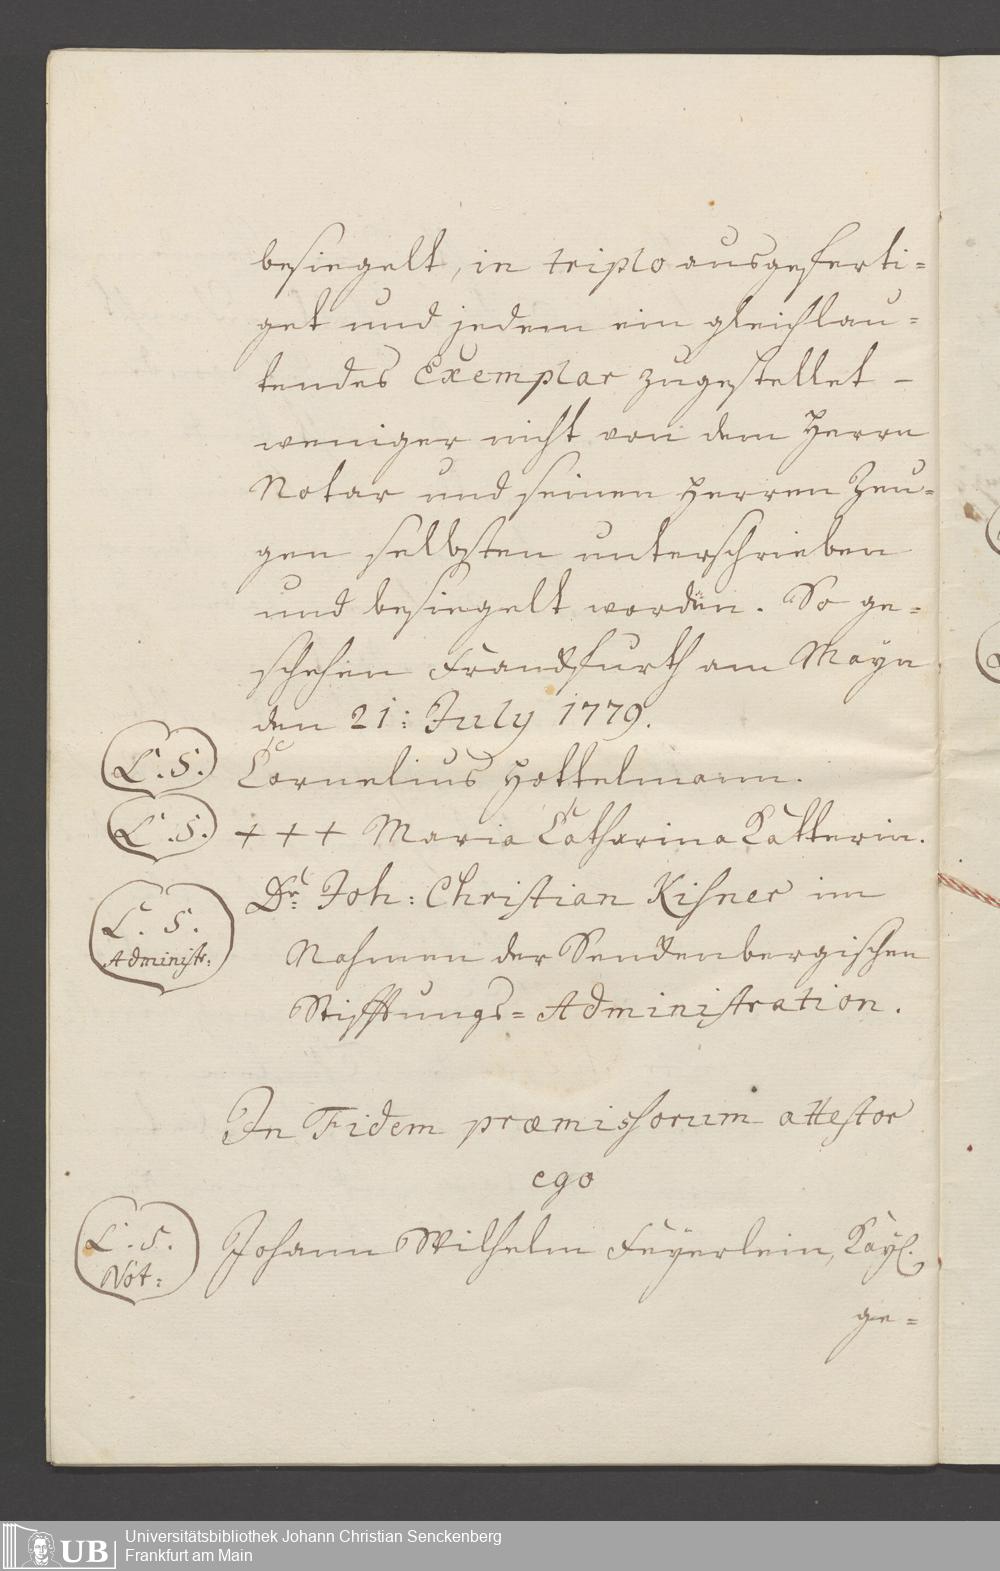 besiegelt, in triplo ausgeferti=
get und jedem ein gleichlau=
tendes Exemplar zugestellet –
weniger nicht von dem Herrn
Notar und seinen Herren Zeu=
gen selbsten unterschrieben
und besiegelt worden. So ge=
schehen Franckfurth am Mayn
den 21: July 1779.
L. S. Cornelius Hottelmann.
L. S. + + + Maria Catharina Katterin.
L. S. Administr: Dr. Joh: Christian Kisner im
Nahmen der Senckenbergischen
Stifftungs= Administration.
In Fidem præmissorum attestor
ego
L. S. Not: Johann Wilhelm Feyerlein, Kayßl.
ge=
UB Universitätsbibliothek Johann Christian Senckenberg
Frankfurt am Main